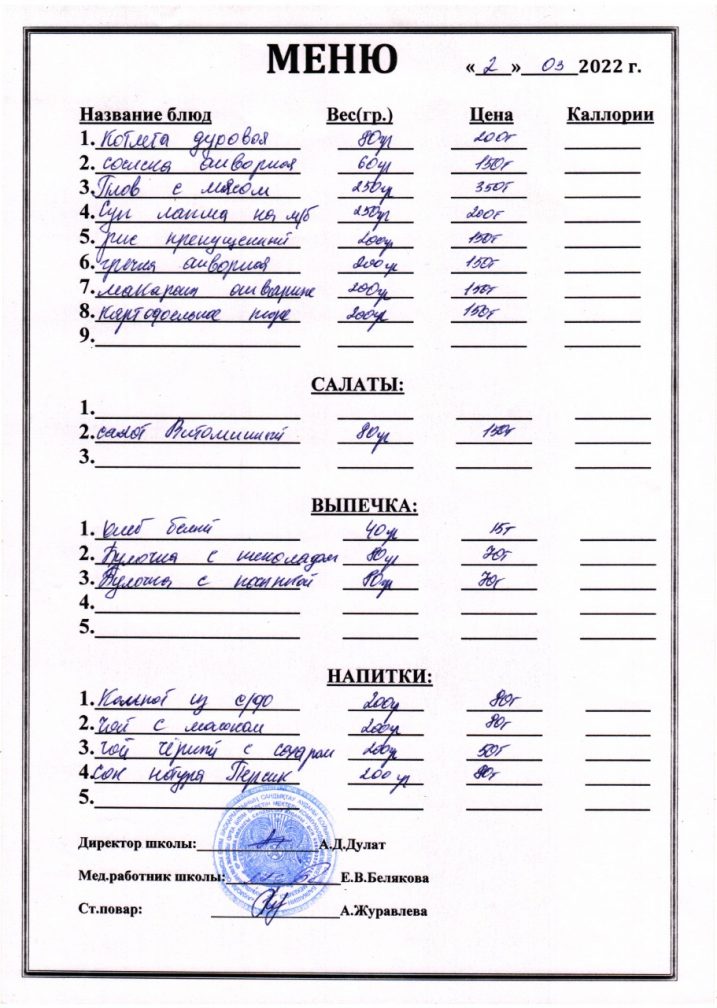 МЕНЮ «2» 03 2022 г.
Название блюд Вес(гр.) Цена Каллории
1. Котлета 80гр 200т
2. сосиска отворная 60гр 150т
3. Плов с мясом 250гр 350т
4. Суп лапша на м/б 250гр 200т
5. рис припущенный 200гр 150т
6. гречка отворная 200гр 150т
7. макароны отварные 200гр 150т
8. картофельное пюре 200гр 150т
9.
САЛАТЫ:
1.
2. салат Витаминный 80гр 150т
3.
ВЫПЕЧКА:
1. хлеб белый 40гр 15т
2. Булочка с шоколадом 80гр 70т
3. Булочка с 80гр 70т
4.
5.
НАПИТКИ:
1. Компот из с/фр 200гр 80т
2. Чай с молоком 200гр 80т
3. Чай чёрный с сахаром 200гр 50т
4. Сок натура Персик 200гр 80т
5.
Директор школы: А.Д.Дулат
Мед.работник школы: Е.В.Белякова
Ст.повар: А.Журавлева